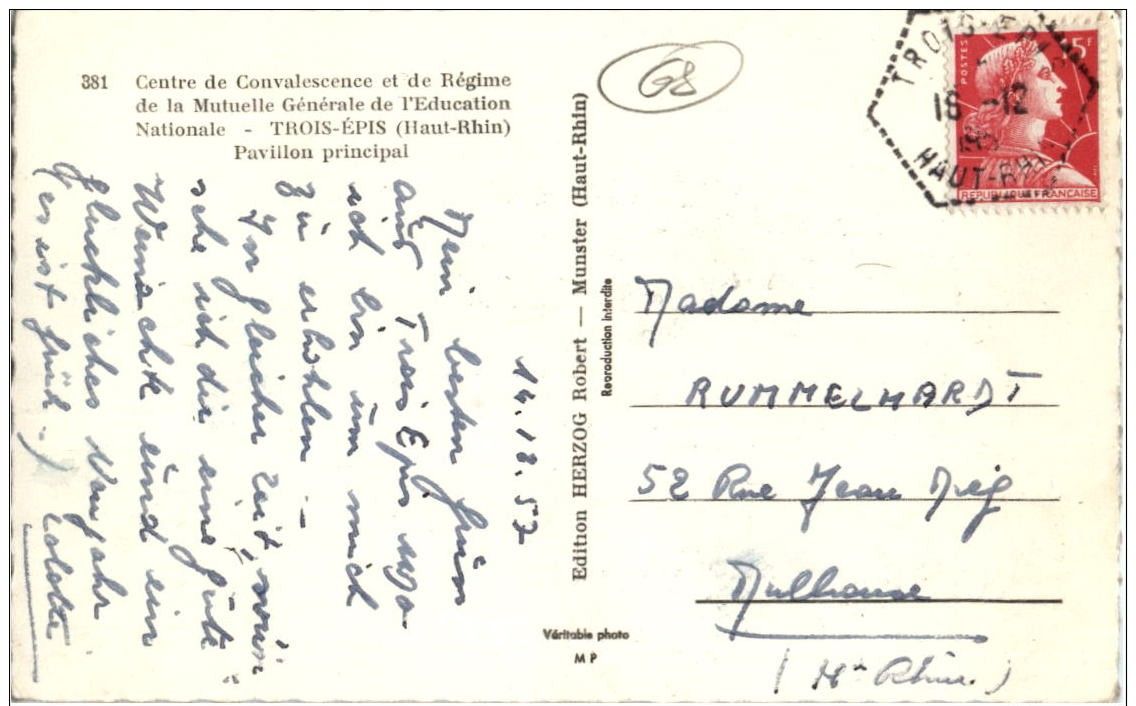 381 Centre de Convalescence et de Régime
de la Mutuelle Générale de l'Education
Nationale - TROIS-ÉPIS (Haut-Rhin)
Pavillon principal
14.12.57
Mein besten
aus Trois Epis wo
ich bin um mich
zu erhohlen –
In gleicher Zeit wün
sche ich dir eine gute
Weinachte und ein
glückliches Neujahr
(es ist früh..) Colette
Edition HERZOG Robert — Munster (Haut-Rhin)
Reproduction interdite
Véritable photo
M P
G8
TROIS-EPIS
16 -12
HAUT-RHIN
POSTES
15F
REPUBLIQUE FRANÇAISE
Madame
RUMMELHARDT
52 Rue Jean Mieg
Mulhouse
(Ht Rhin.)